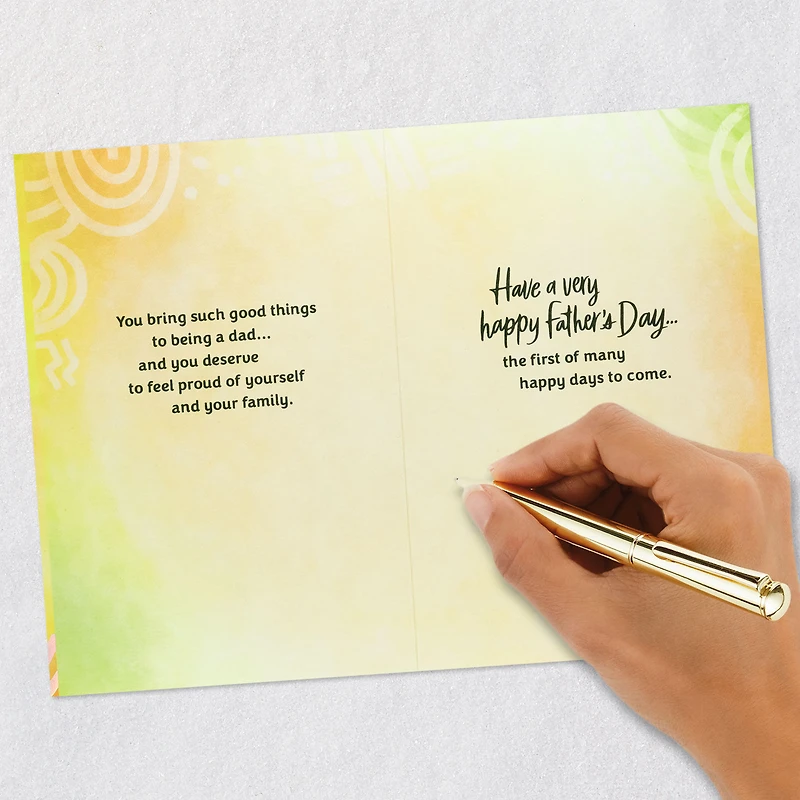 You bring such good things
to being a dad...
and you deserve
to feel proud of yourself
and your family.
Have a very
happy Father's Day...
the first of many
happy days to come.